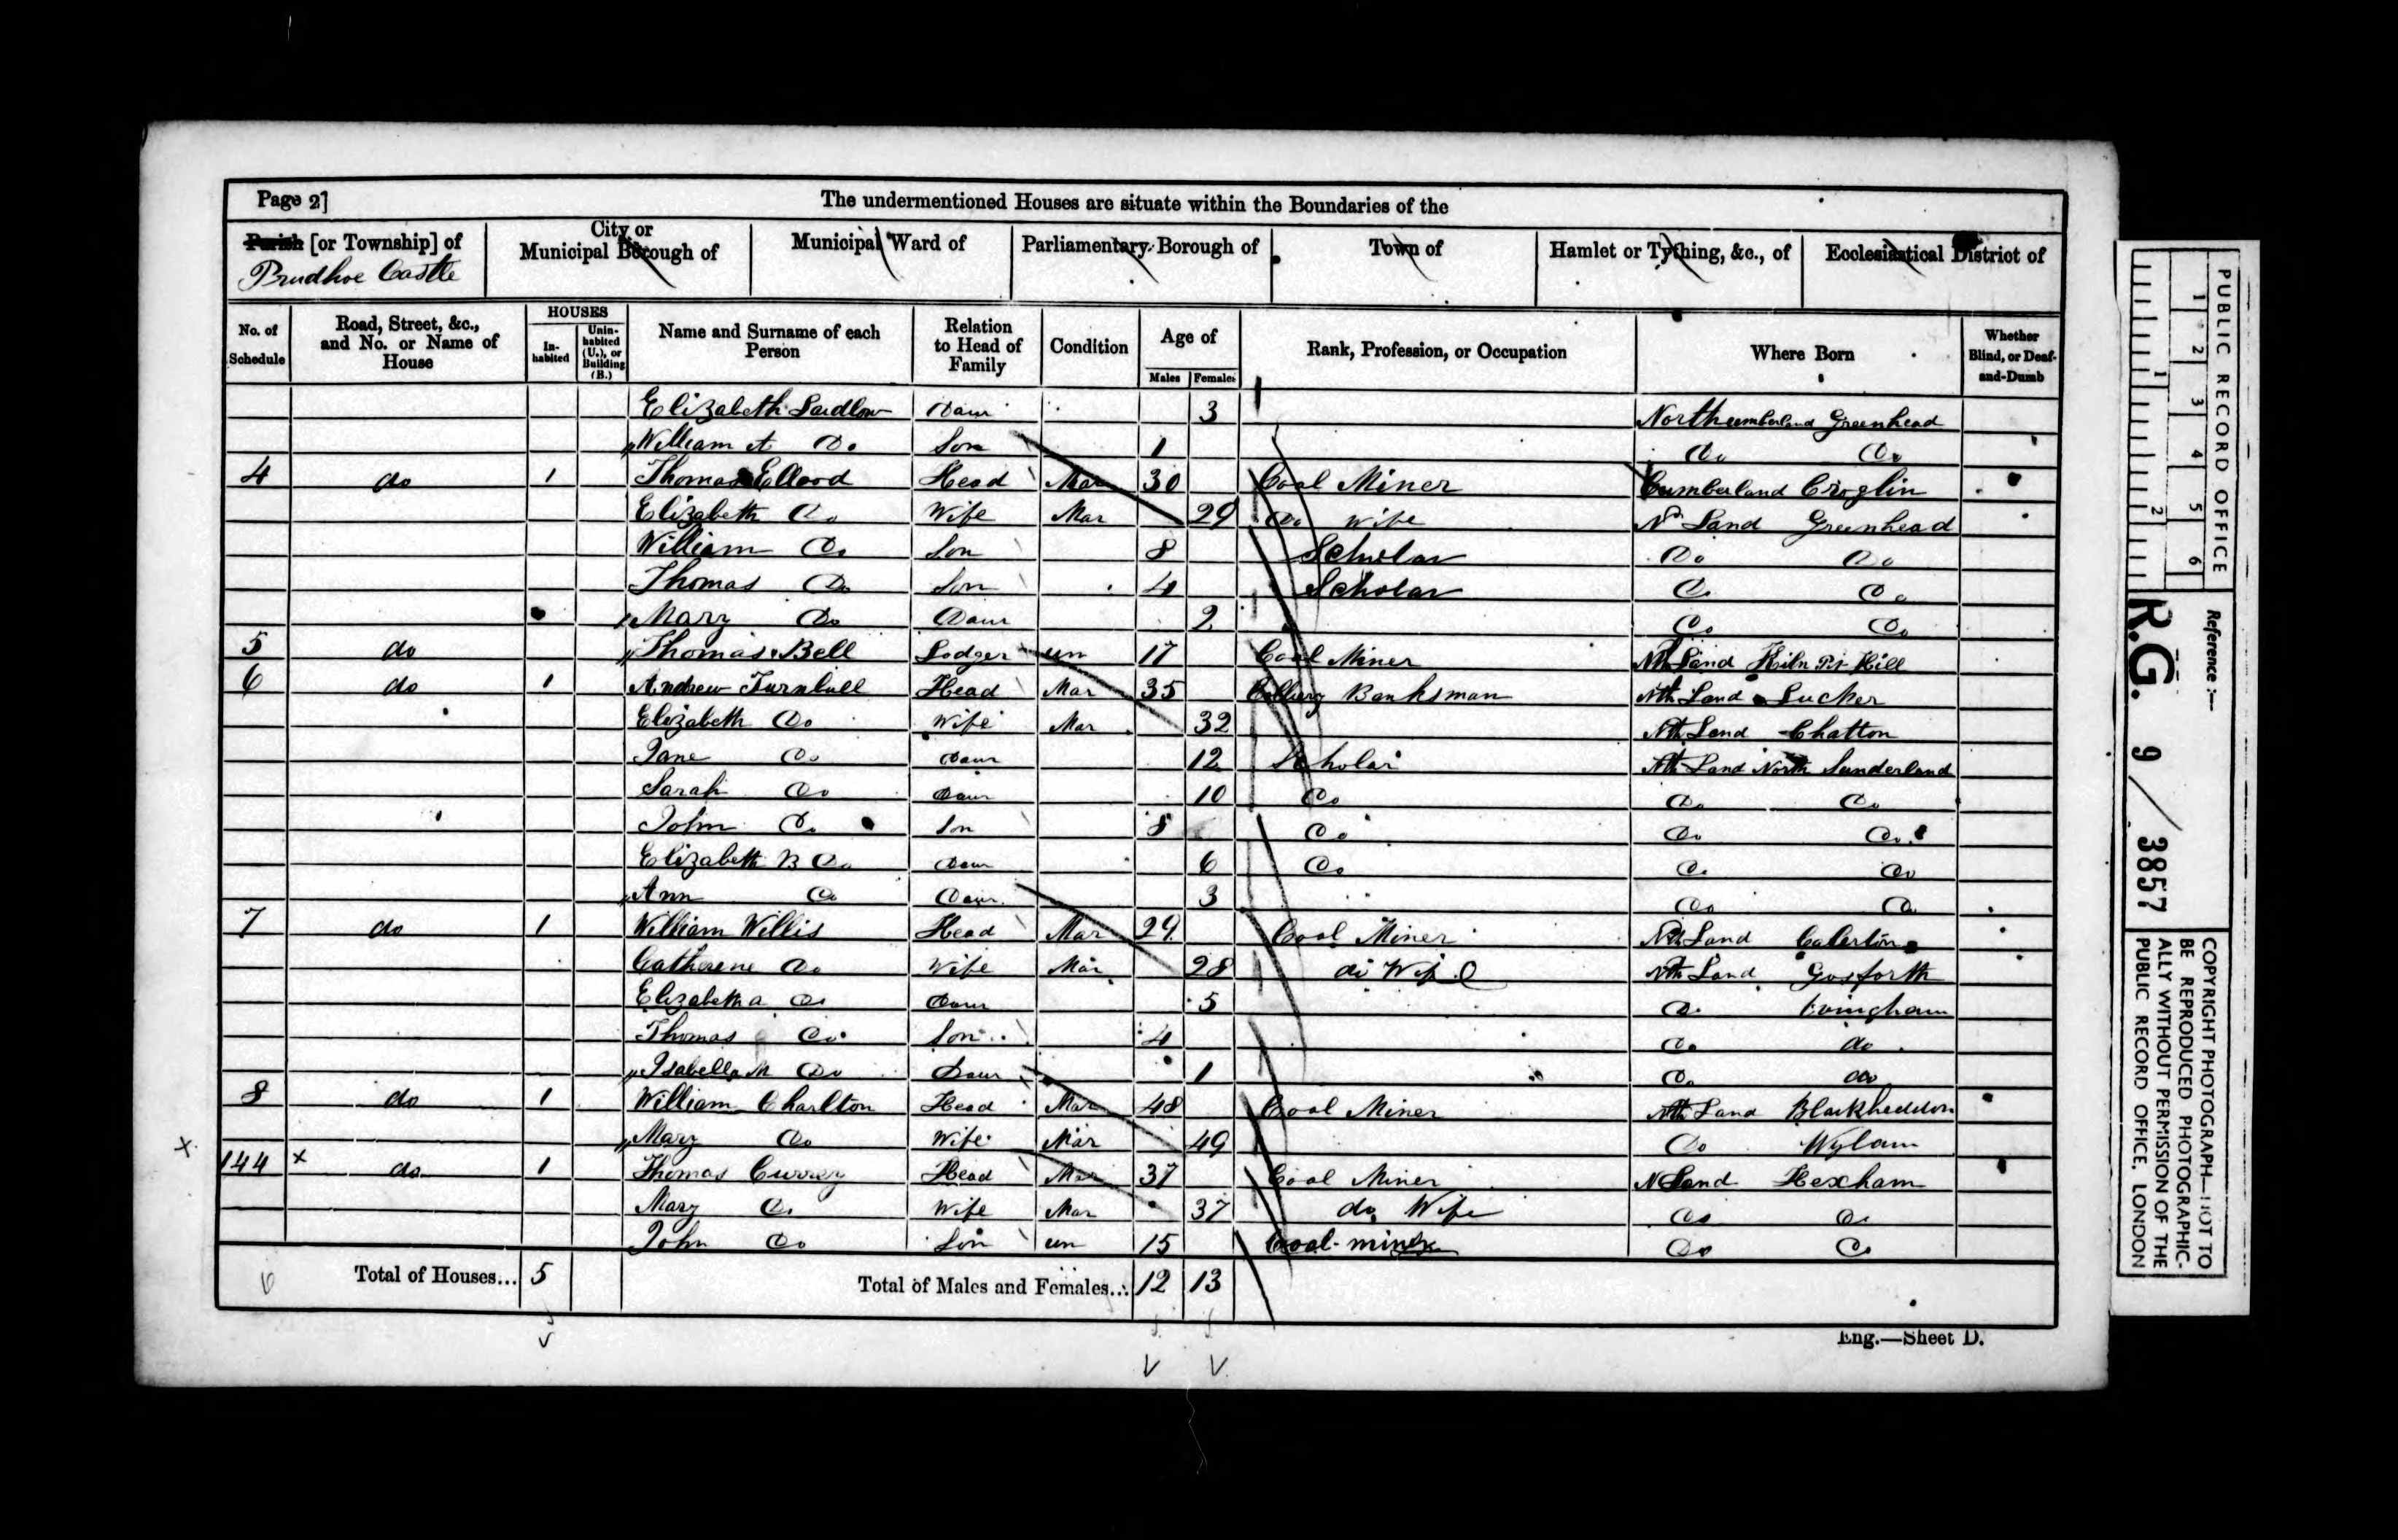 Page 2] The undermentioned Houses are situate within the Boundaries of the
Parish [or Township] of City or Municipal Borough of Municipal Ward of Parliamentary Borough of Town of Hamlet or Tything, &c., of Ecclesiastical District of
Prudhoe Castle
No. of Schedule Road, Street, &c., and No. or Name of House HOUSES Inhabited Uninhabited (U.), or Building (B.) Name and Surname of each Person Relation to Head of Family Condition Age of Males Females Rank, Profession, or Occupation Where Born Whether Blind, or Deaf-and-Dumb
Elizabeth Daur 3 Northumberland Greenhead
William A Do Son 1 Do Do
4 do 1 Thomas Ellwood Head Mar 30 Coal Miner Cumberland Croglin
Elizabeth Do Wife Mar 29 Do Wife Nd Land Greenhead
William Do Son 8 Scholar Do Do
Thomas Do Son 4 Scholar Do Do
Mary Do Daur 2 Do Do
5 do Thomas Bell Lodger un 17 Coal Miner Nth Land Kiln Pit Hill
6 do 1 Andrew Turnbull Head Mar 35 Colliery Banksman Nth Land Lucker
Elizabeth Do Wife Mar 32 Nth Land Chatton
Jane Do Daur 12 Scholar Nth Land North Sunderland
Sarah Do Daur 10 Do Do Do
John Do Son 8 Do Do Do
Elizabeth B Do Daur 6 Do Do Do
Ann Do Daur 3 Do Do
7 do 1 William Willis Head Mar 29 Coal Miner Nth Land Calerton
Catherene Do Wife Mar 28 do Wife Nth Land Gosforth
Elizabeth a Do Daur 5 Do Ovingham
Thomas Do Son 4 Do do
Isabella M Do Daur 1 Do do
8 do 1 William Charlton Head Mar 48 Coal Miner Nth Land Blackheddon
Mary Do Wife Mar 49 Do Wylam
144 x do 1 Thomas Currey Head Mar 37 Coal Miner N Land Hexham
Mary Do Wife Mar 37 do Wife Do Do
John Do Son un 15 Coal miner Do Do
Total of Houses... 5 Total of Males and Females... 12 13
Eng.—Sheet D.
PUBLIC RECORD OFFICE
1 2 3 4 5 6
1 2
Reference:—
R.G. 9 / 3857
COPYRIGHT PHOTOGRAPH—NOT TO
BE REPRODUCED PHOTOGRAPHIC-
ALLY WITHOUT PERMISSION OF THE
PUBLIC RECORD OFFICE, LONDON